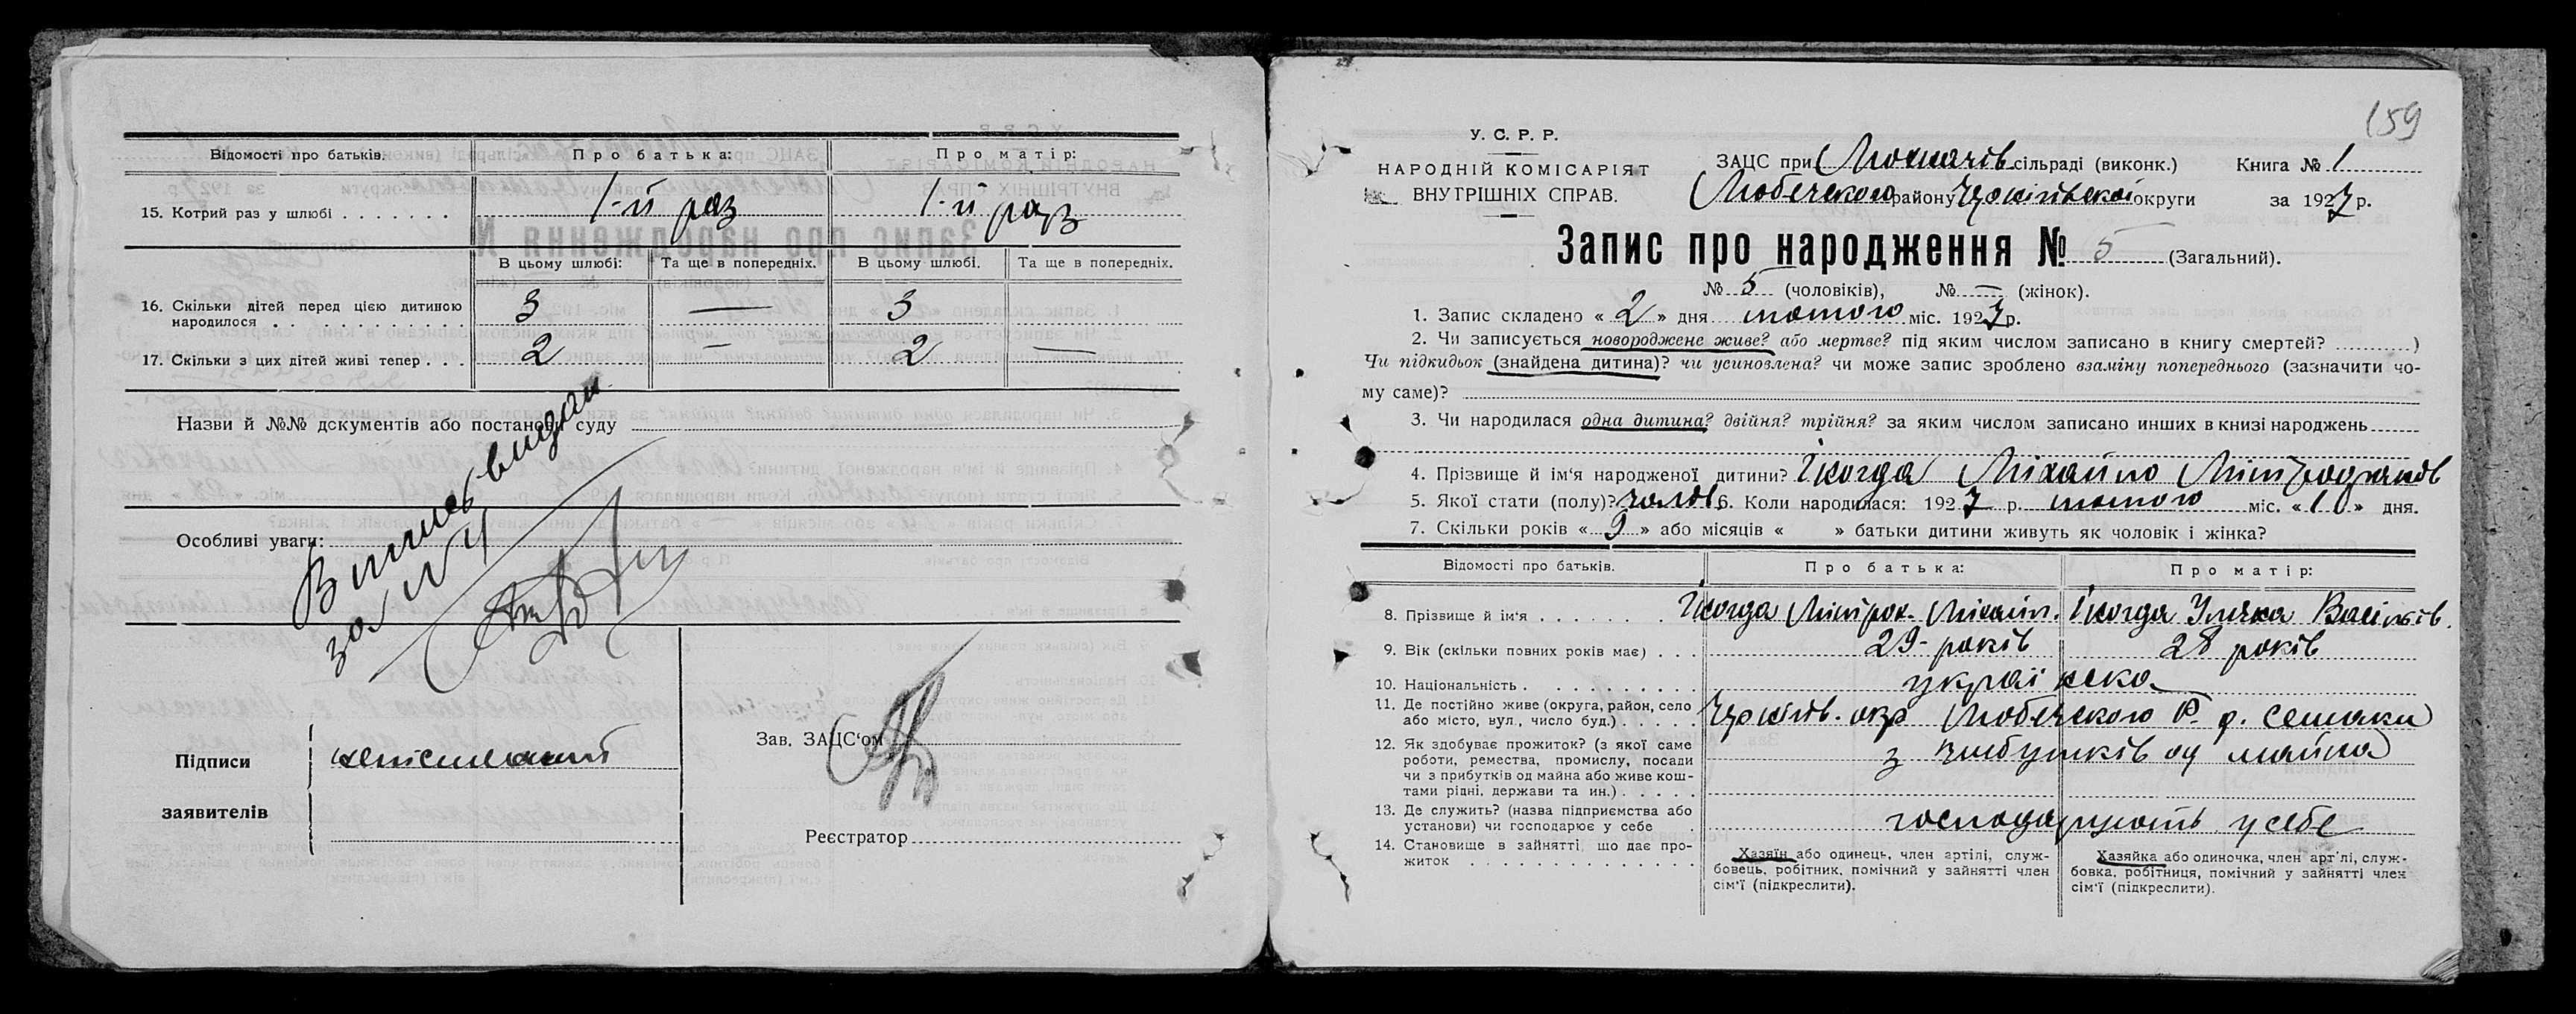 Відомості про батьків. Про батька: Про матір:
15. Котрий раз у шлюбі . . . . . . . 1-й раз 1-й раз
В цьому шлюбі: Та ще в попередніх. В цьому шлюбі. Та ще в попередніх.
16. Скільки дітей перед цією дитиною
народилося . . . . . . . . . . . . 3 — 3
17. Скільки з цих дітей живі тепер . . . 2 — 2 —
Назви й №№ документів або постанови суду
Особливі уваги:
Випись видан
за №4
Підписи
заявителів
неписьменний
Зав. ЗАЦС'ом
Реєстратор
159
У. С. Р. Р.
НАРОДНІЙ КОМІСАРІЯТ
ВНУТРІШНІХ СПРАВ.
ЗАЦС при сільраді (виконк.) Книга № 1
Любечського району Чернігівської округи за 1927 р.
Запис про народження № 5 (Загальний).
№ 5 (чоловіків), № — (жінок).
1. Запис складено « 2 » дня лютого міс. 1927 р.
2. Чи записується новороджене живе? або мертве? під яким числом записано в книгу смертей? )
Чи підкидьок (знайдена дитина)? чи усиновлена? чи може запис зроблено взаміну попереднього (зазначити чо-
му саме)?
3. Чи народилася одна дитина? двійня? трійня? за яким числом записано инших в книзі народжень
4. Прізвище й ім'я народженої дитини? Ікогда Міхайло Мітрофанов
5. Якої стати (полу)? чолов. 6. Коли народилася: 1927 р. лютого міс. «10» дня.
7. Скільки років « 9 » або місяців « » батьки дитини живуть як чоловік і жінка?
Відомості про батьків. Про батька: Про матір:
8. Прізвище й ім'я . . . . . . . Ікогда Мітроф. Міхайл. Ікогда Улячка Васільєв.
9. Вік (скільки повних років має) . . . 29-років 28 років
10. Національність . . . . . . . . . . українська
11. Де постійно живе (округа, район, село
або місто, вул., число буд.) . . . . . Чернігів. окр Любечського Р.
12. Як здобуває прожиток? (з якої саме
роботи, ремества, промислу, посади
чи з прибутків од майна або живе кош-
тами рідні, держави та ин.) . . . . . з прибутків од майна
13. Де служить? (назва підприємства або
установи) чи господарює у себе . господарують у себе
14. Становище в зайнятті що дає про-
житок . . . . . . . . . . . . . . .
Хазяїн або одинець, член артілі, служ-
бовець, робітник, помічний у зайнятті член
сім'ї (підкреслити).
Хазяйка або одиночка, член арт'лі, служ-
бовка, робітниця, помічний у зайнятті член
сім'ї (підкреслити).